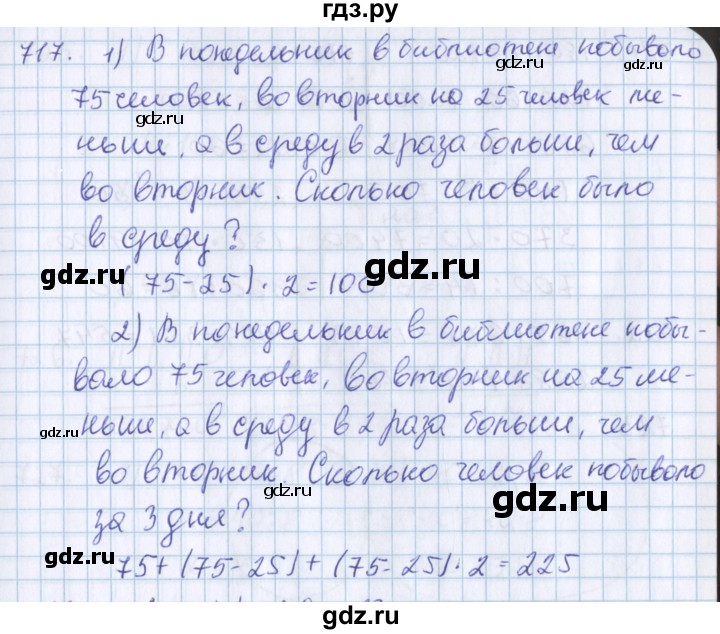 гдз.ру
717. 1) В понедельник в библиотеке побывало
75 человек, во вторник на 25 человек ме-
ньше, а в среду в 2 раза больше, чем
во вторник. Сколько человек было
в среду?
(75-25)·2=100
2) В понедельник в библиотеке побы-
вало 75 человек, во вторник на 25 ме-
ньше, а в среду в 2 раза больше, чем
во вторник. Сколько человек побывало
за 3 дня?
75+(75-25)+(75-25)·2=225
gdz.ru
gdz.ru
gdz.ru
gdz.ru
gdz.ru
gdz.ru
gdz.ru
gdz.ru
gdz.ru
gdz.ru
gdz.ru
gdz.ru